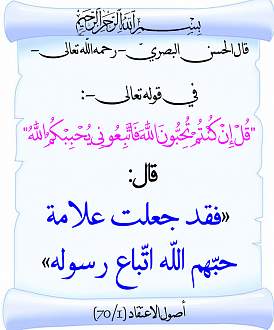 بسم الله الرحمن الرحيم
قال الحسن البصري - رحمه الله تعالى -
في قوله تعالى -:
"قُلْ إِنْ كُنْتُمْ تُحِبُّونَ اللهَ فَاتَّبِعُونِي يُحْبِبْكُمُ اللهُ"
قال:
«فقد جعلت علامة
حبّهم الله اتّباع رسوله»
أصول الاعتقاد (70/1)